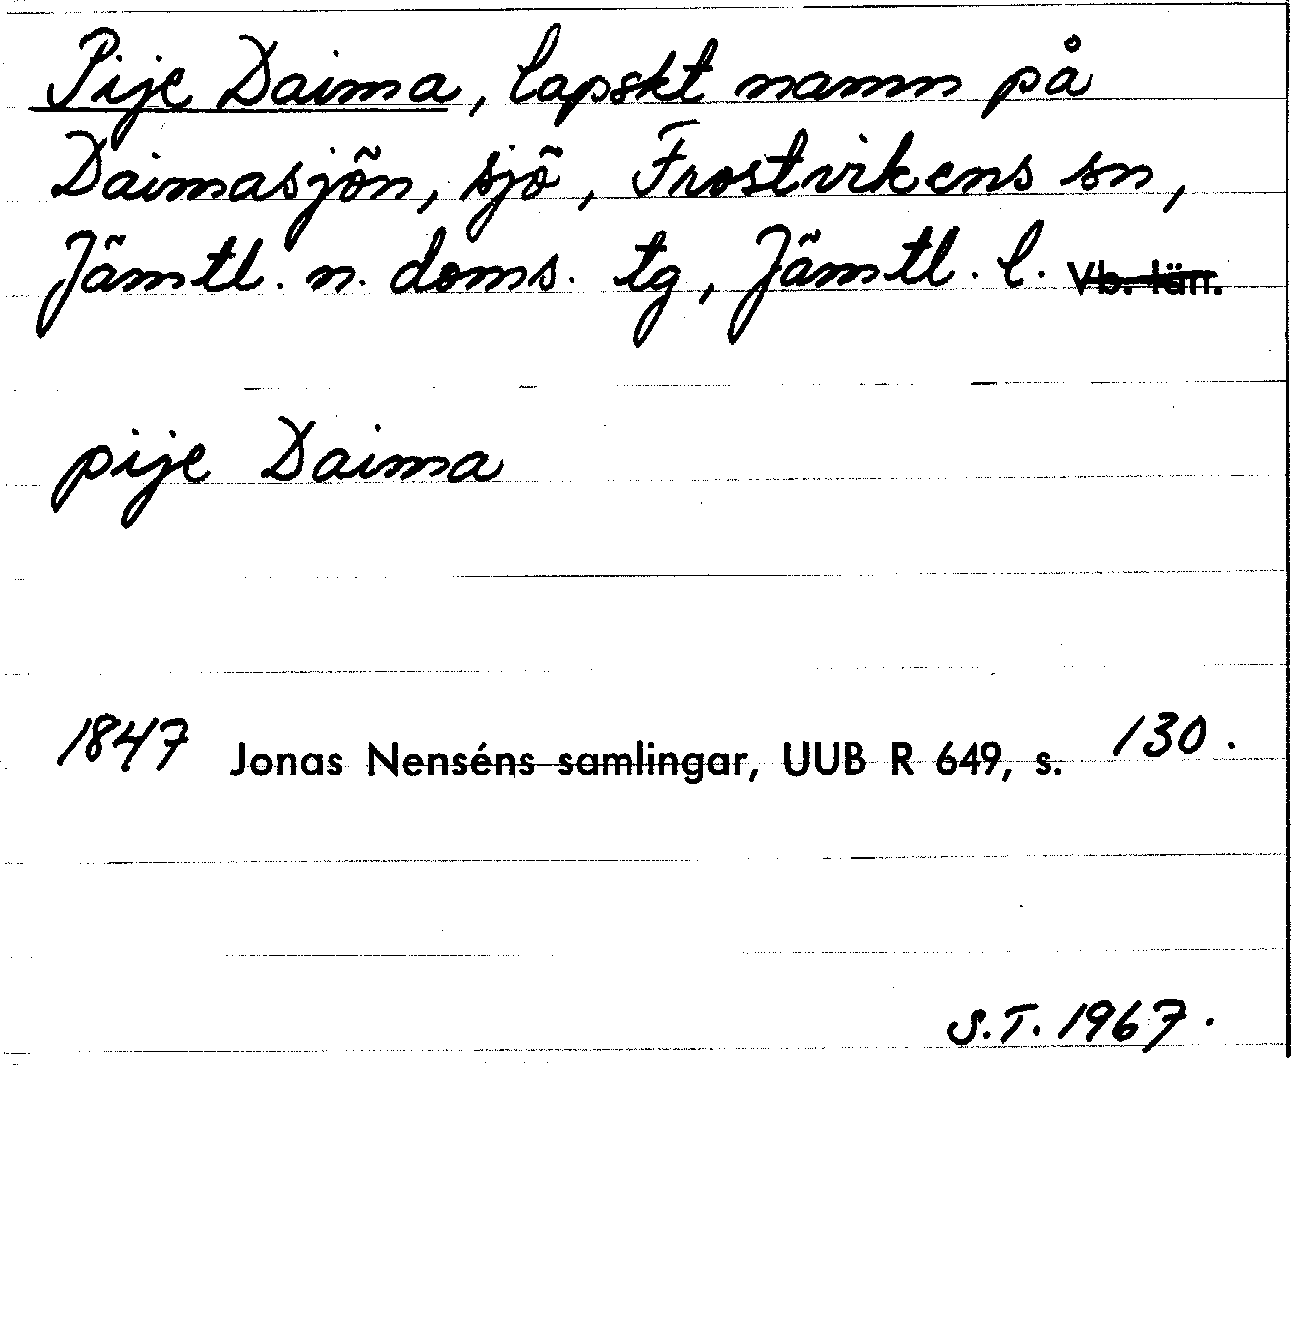 Pije Daima, lapskt namn på
Daimasjön, sjö, Frostvikens sn,
Jämtl. n. doms. tg, Jämtl. l. Vb. län.
pije Daima
1847 Jonas Nenséns samlingar, UUB R 649, s. 130.
S.T. 1967.